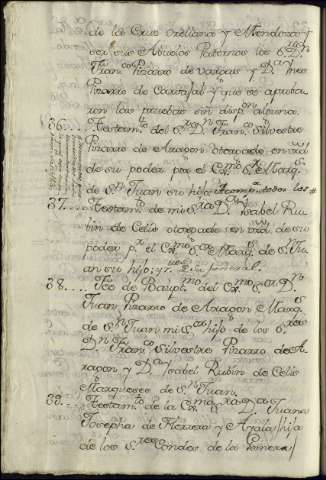 de la Cruz Orellana y Mendoza y
ser sus Abuelos Paternos los Sres Dn
Franco Pizarro de vargas y Da Ynes
Pizarro de Carvajal y que se aprueba
ron las pruebas sin dispon alguna.
36.... Testamto del Sr Dn Franco Silvestre
Pizarro de Aragon otorgado en
de su poder por el Exmo Sr Marqs
de Sn Juan su hijo
37... Testamto de mi Sra Da Isabel Ru
bin de Celis otorgado en de su
poder pr el Exmo Sr Marqs de Sn Ju
an su hijo; y
38.... Fee de Baupmo del Exmo Sr Dn
Juan Pizarro de Aragon Marqs
de Sn Juan mi Sor hijo de los Sres
Dn Franco Silvestre Pizarro de A
ragon y Da Isabel Rubin de Celis
Marqueses de Sn Juan.
Testamto de la Exma Sra Da Juana
Josepha de Herrera y Ayala hija
de los Sres Condes de la Gomera